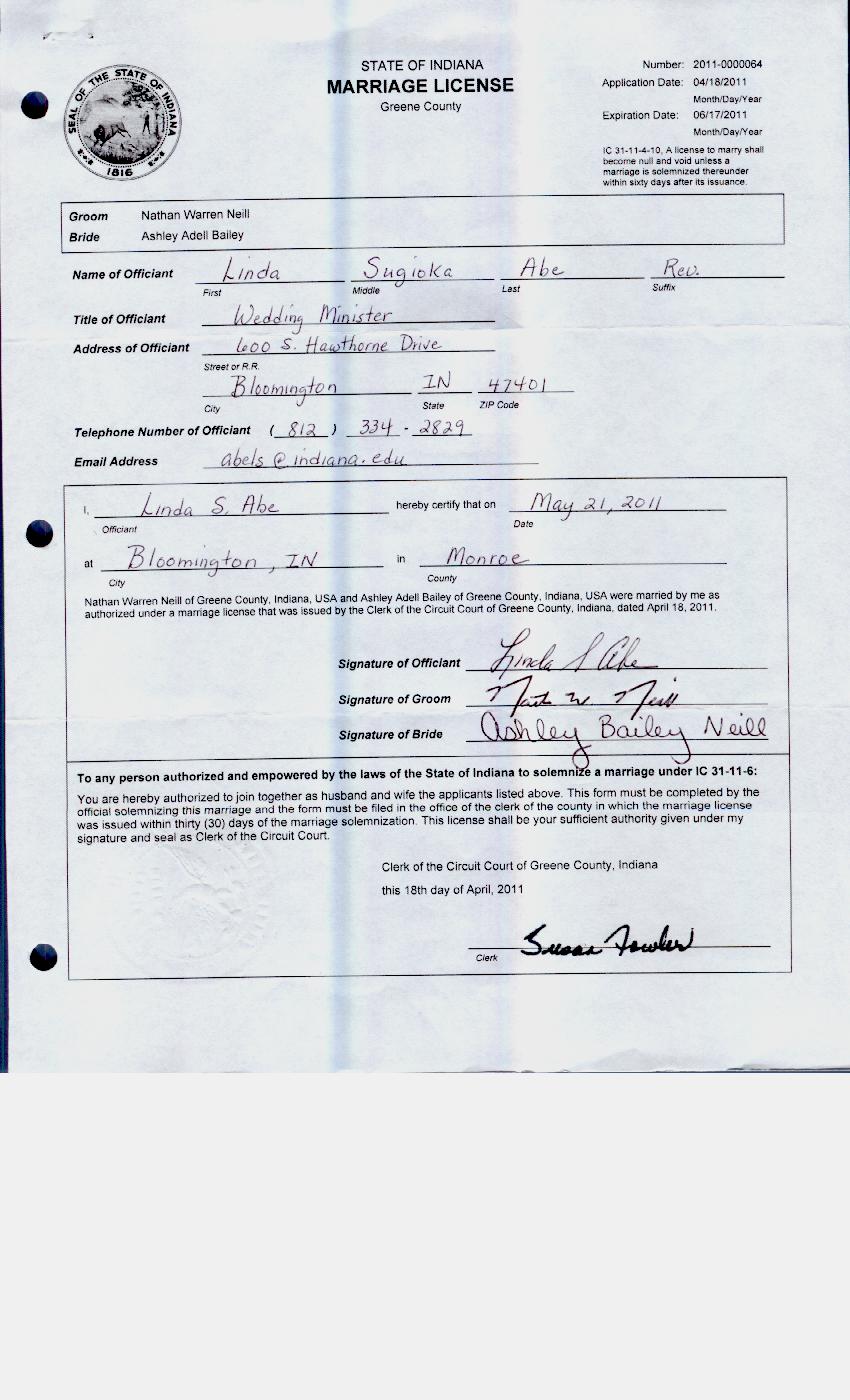 SEAL OF THE STATE OF INDIANA
1816
STATE OF INDIANA
MARRIAGE LICENSE
Greene County
Number: 2011-0000064
Application Date: 04/18/2011
Month/Day/Year
Expiration Date: 06/17/2011
Month/Day/Year
IC 31-11-4-10, A license to marry shall
become null and void unless a
marriage is solemnized thereunder
within sixty days after its issuance.
Groom Nathan Warren Neill
Bride Ashley Adell Bailey
Name of Officiant Linda Sugioka Abe Rev.
First Middle Last Suffix
Title of Officiant Wedding Minister
Address of Officiant 600 S. Hawthorne Drive
Street or R.R.
Bloomington IN 47401
City State ZIP Code
Telephone Number of Officiant ( 812 ) 334 - 2829
Email Address abels @ indiana.edu
I, Linda S. Abe hereby certify that on May 21, 2011
Officiant Date
at Bloomington, IN in Monroe
City County
Nathan Warren Neill of Greene County, Indiana, USA and Ashley Adell Bailey of Greene County, Indiana, USA were married by me as
authorized under a marriage license that was issued by the Clerk of the Circuit Court of Greene County, Indiana, dated April 18, 2011.
Signature of Officiant Linda S Abe
Signature of Groom Nath W. Neill
Signature of Bride Ashley Bailey Neill
To any person authorized and empowered by the laws of the State of Indiana to solemnize a marriage under IC 31-11-6:
You are hereby authorized to join together as husband and wife the applicants listed above. This form must be completed by the
official solemnizing this marriage and the form must be filed in the office of the clerk of the county in which the marriage license
was issued within thirty (30) days of the marriage solemnization. This license shall be your sufficient authority given under my
signature and seal as Clerk of the Circuit Court.
Clerk of the Circuit Court of Greene County, Indiana
this 18th day of April, 2011
Clerk Susan Fowler